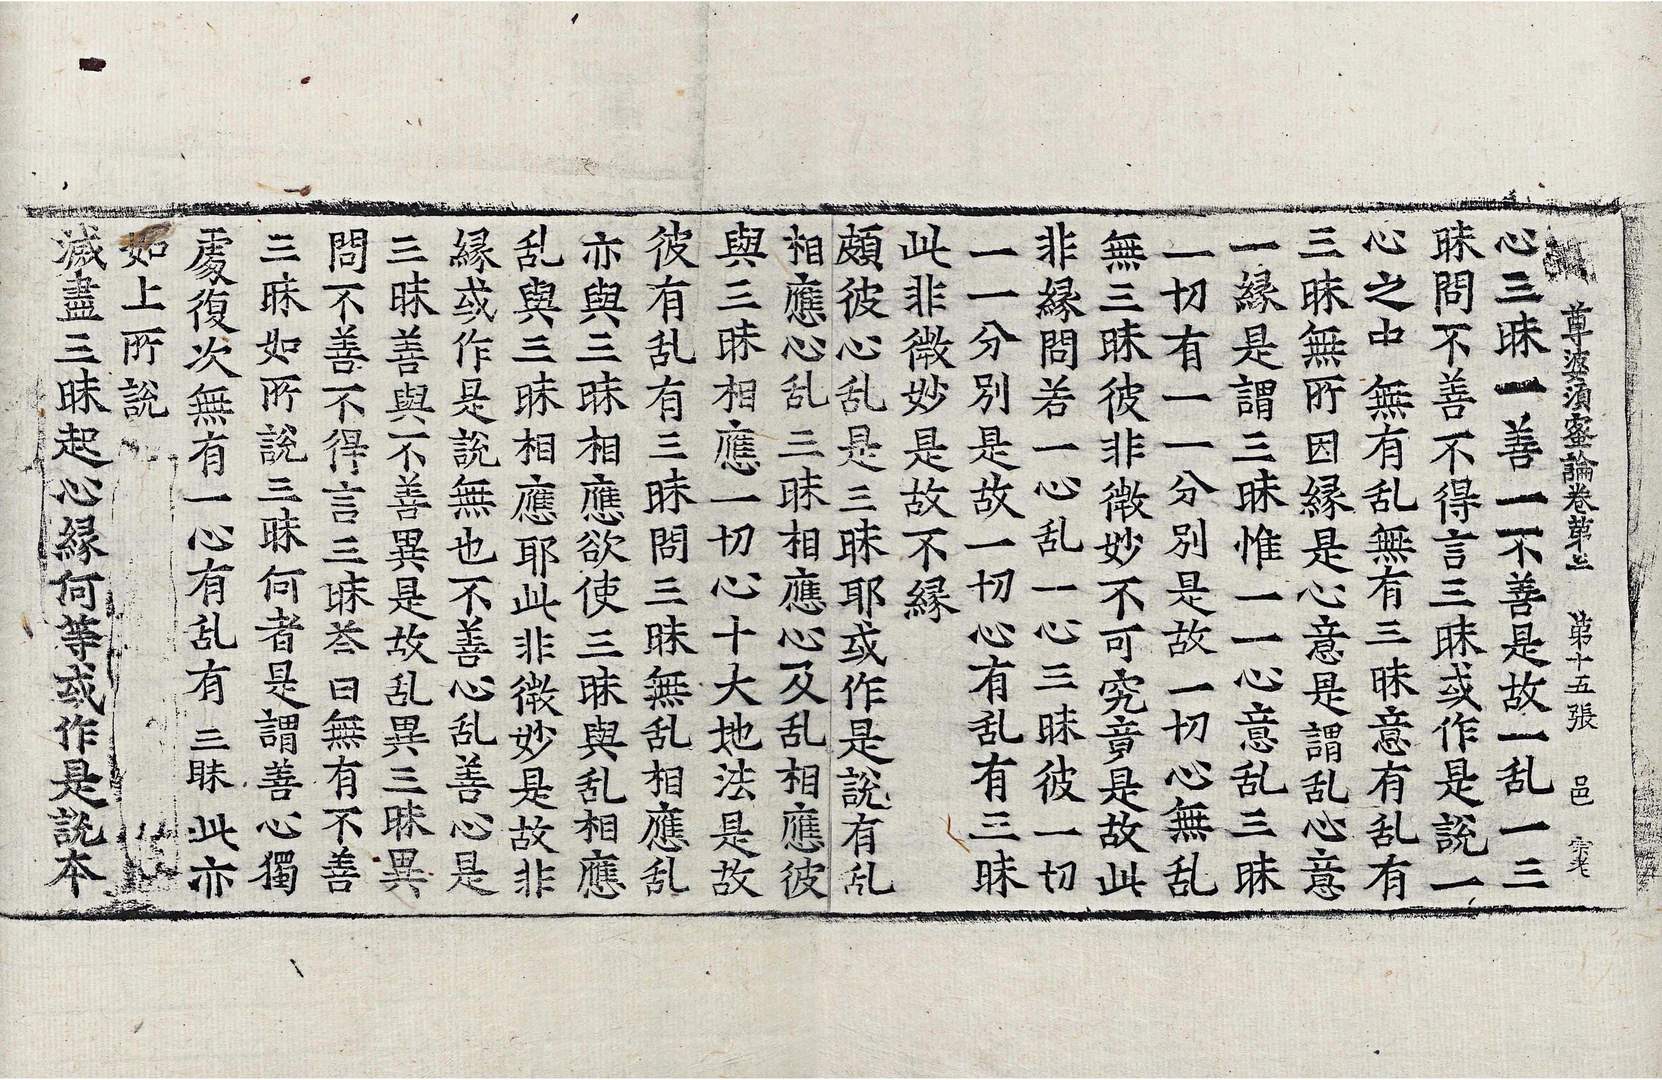 尊婆須蜜論卷第七 第十五張 邑
心三昧一善一不善是故一乱一三
昧問不善不得言三昧或作是說一
心之中無有乱無有三昧意有乱有
三昧無所因緣是心意是謂乱心意
一緣是謂三昧惟一一心意乱三昧
一切有一一分別是故一切心無乱
無三昧彼非微妙不可究竟是故此
非緣問若一心乱一心三昧彼一切
一一分別是故一切心有乱有三昧
此非微妙是故不緣
頗彼心乱是三昧耶或作是說有乱
相應心乱三昧相應心及乱相應彼
與三昧相應一切心十大地法是故
彼有乱有三昧問三昧無乱相應乱
亦與三昧相應欲使三昧與乱相應
乱與三昧相應耶此非微妙是故非
緣或作是說無也不善心乱善心是
三昧善與不善異是故乱異三昧異
問不善不得言三昧荅曰無有不善
三昧如所說三昧何者是謂善心獨
處復次無有一心有乱有三昧此亦
如上所說
滅盡三昧起心緣何等或作是說本